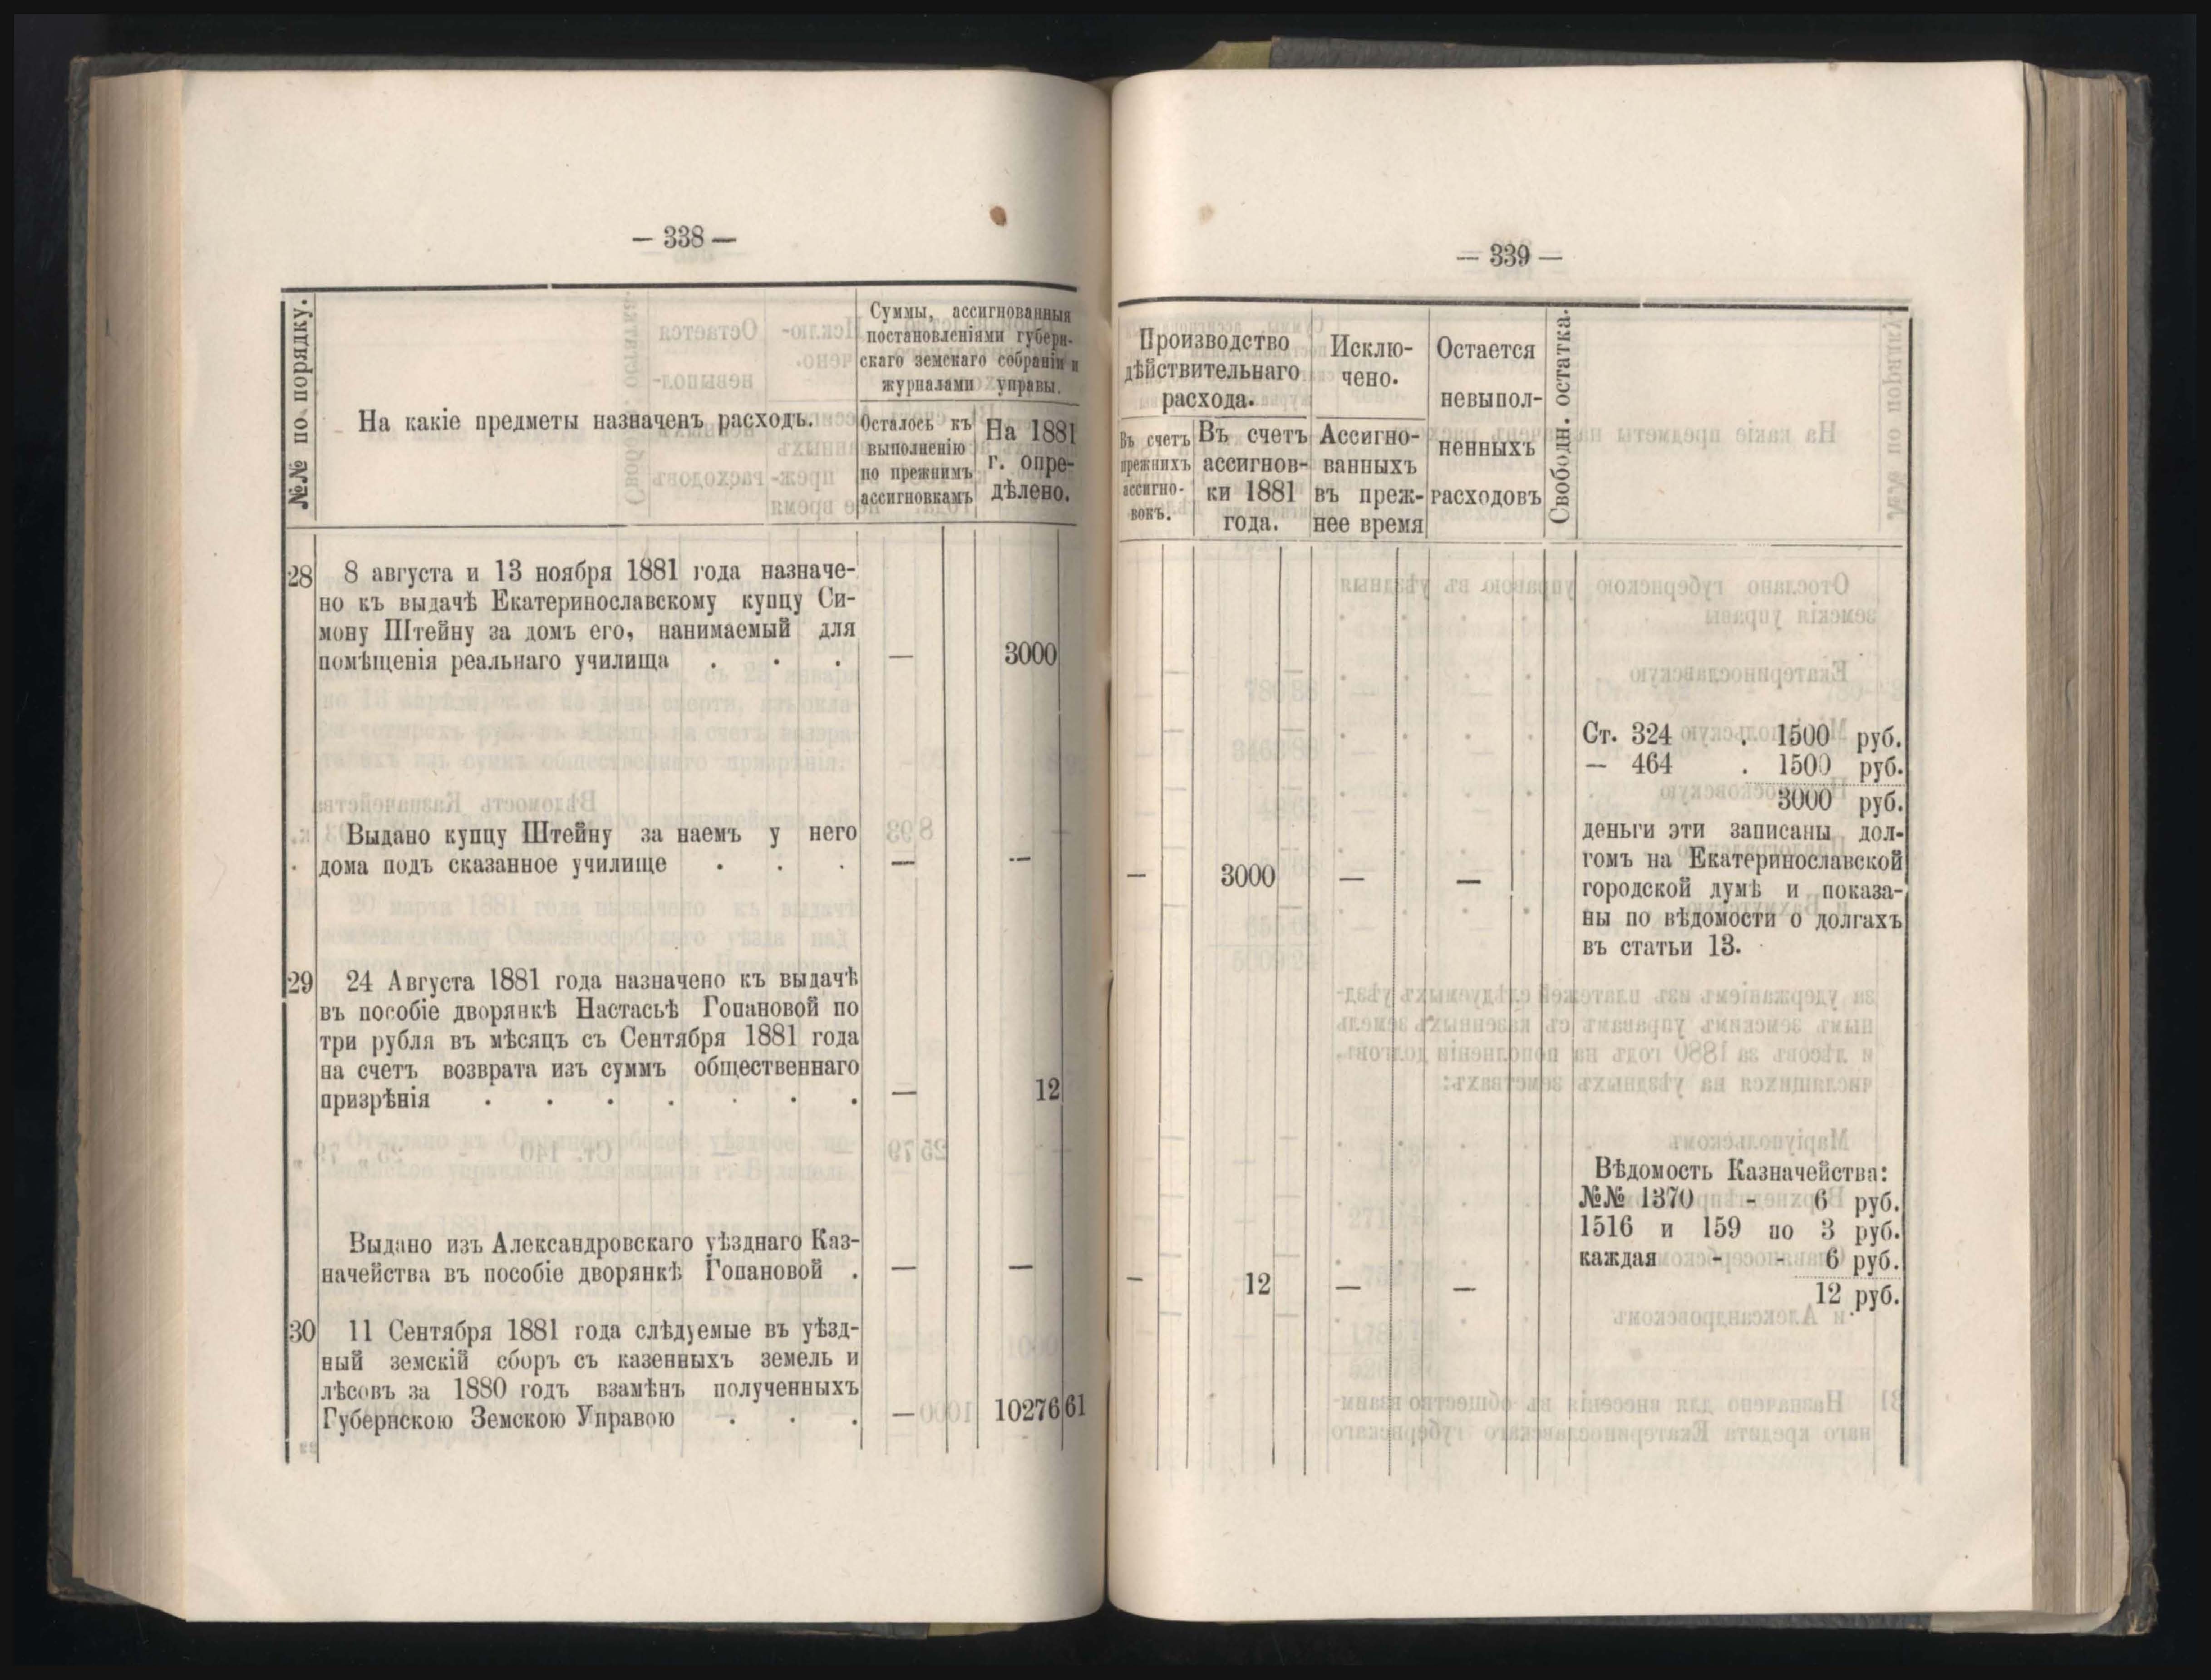 — 338 —
№№ по порядку.
На какіе предметы назначенъ расходъ.
Суммы, ассигнованныя
постановленіями губерн-
скаго земскаго собранія и
журналами управы.
Осталось къ
выполненію
по прежнимъ
ассигновкамъ
На 1881
г. опре-
дѣлено.
28 8 августа и 13 ноября 1881 года назначе-
но къ выдачѣ Екатеринославскому купцу Си-
мону Штейну за домъ его, нанимаемый для
помѣщенія реальнаго училища . . . — 3000
Выдано купцу Штейну за наемъ у него
дома подъ сказанное училище . . . — —
29 24 Августа 1881 года назначено къ выдачѣ
въ пособіе дворянкѣ Настасьѣ Гопановой по
три рубля въ мѣсяцъ съ Сентября 1881 года
на счетъ возврата изъ суммъ общественнаго
призрѣнія . . . . . . . — 12
Выдано изъ Александровскаго уѣзднаго Каз-
начейства въ пособіе дворянкѣ Гопановой . — —
30 11 Сентября 1881 года слѣдуемые въ уѣзд-
ный земскій сборъ съ казенныхъ земель и
лѣсовъ за 1880 годъ взамѣнъ полученныхъ
Губернскою Земскою Управою . . . — 10276 61
— 339 —
Производство
дѣйствительнаго
расхода.
Въ счетъ
прежнихъ
ассигно-
вокъ.
Въ счетъ
ассигнов-
ки 1881
года.
Исклю-
чено.
Ассигно-
ванныхъ
въ преж-
нее время
Остается
невыпол-
ненныхъ
расходовъ
Свободн. остатка.
Ст. 324 . 1500 руб.
— 464 . 1500 руб.
3000 руб.
деньги эти записаны дол-
гомъ на Екатеринославской
— 3000 — —
городской думѣ и показа-
ны по вѣдомости о долгахъ
въ статьи 13.
Вѣдомость Казначейства:
№№ 1370 - 6 руб.
1516 и 159 по 3 руб.
каждая - - 6 руб.
— 12 — —
12 руб.